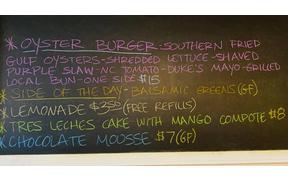 * OYSTER BURGER-SOUTHERN FRIED
GULF OYSTERS-SHREDDED LETTUCE-SHAVED
PURPLE SLAW-NC TOMATO-DUKE'S MAYO-GRILLED
LOCAL BUN-ONE SIDE $15
* SIDE OF THE DAY-BALSAMIC GREENS (GF)
* LEMONADE $3.50 (FREE REFILLS)
* TRES LECHES CAKE WITH MANGO COMPOTE $8
* CHOCOLATE MOUSSE $7 (GF)